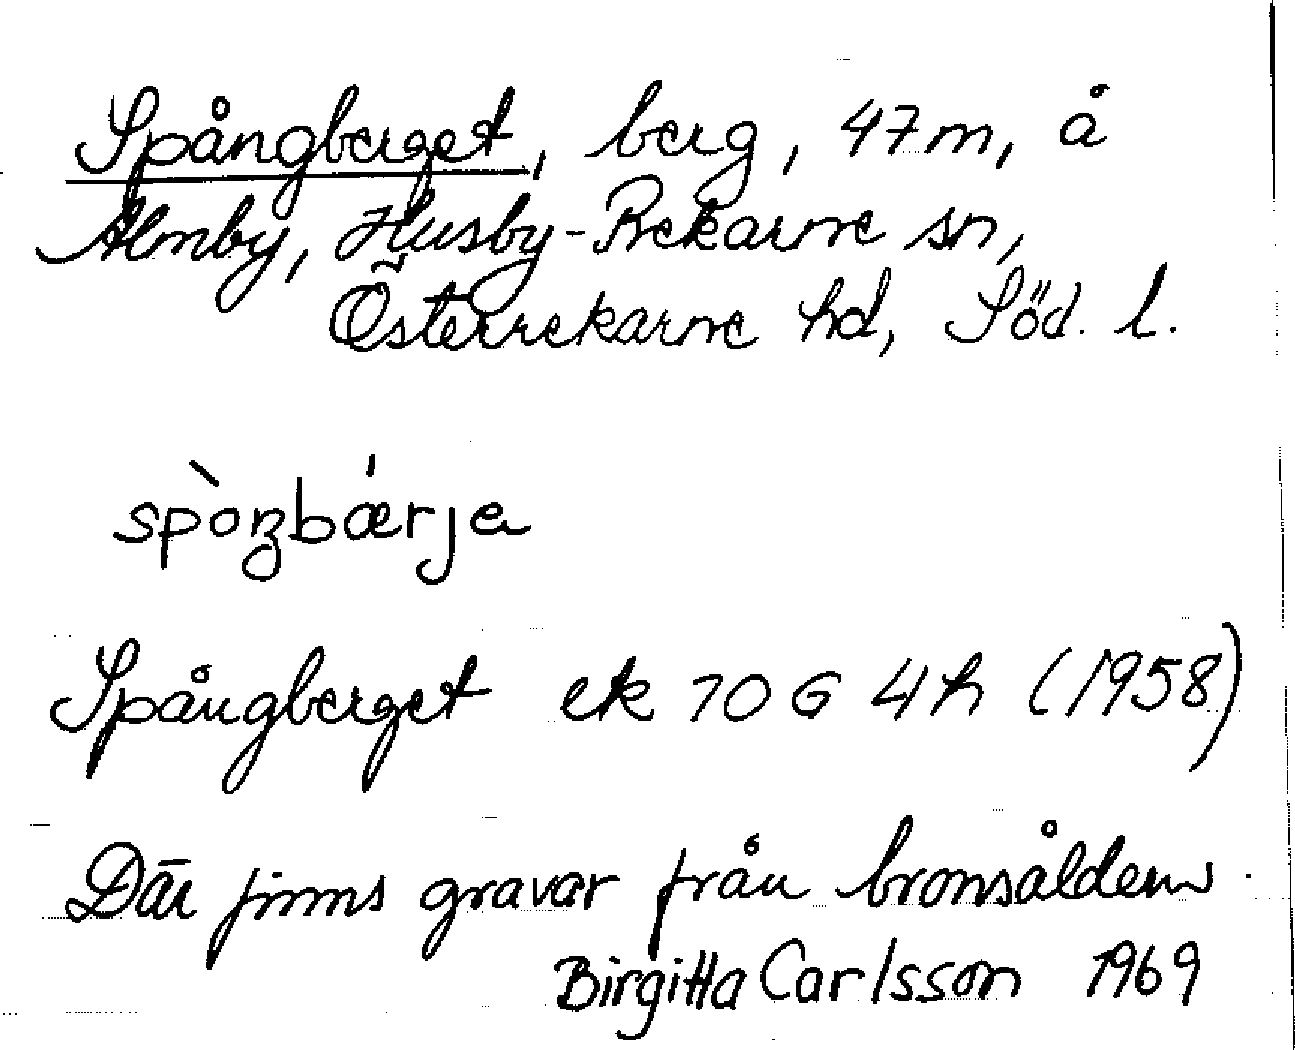 Spångberget, berg, 47m, å
Almby, Husby-Rekarne sn,
Österrekarne hd, Söd. l.
spòŋbærja
Spångberget ek 10 G 4h (1958)
Där finns gravar från bronsåldern.
Birgitta Carlsson 1969